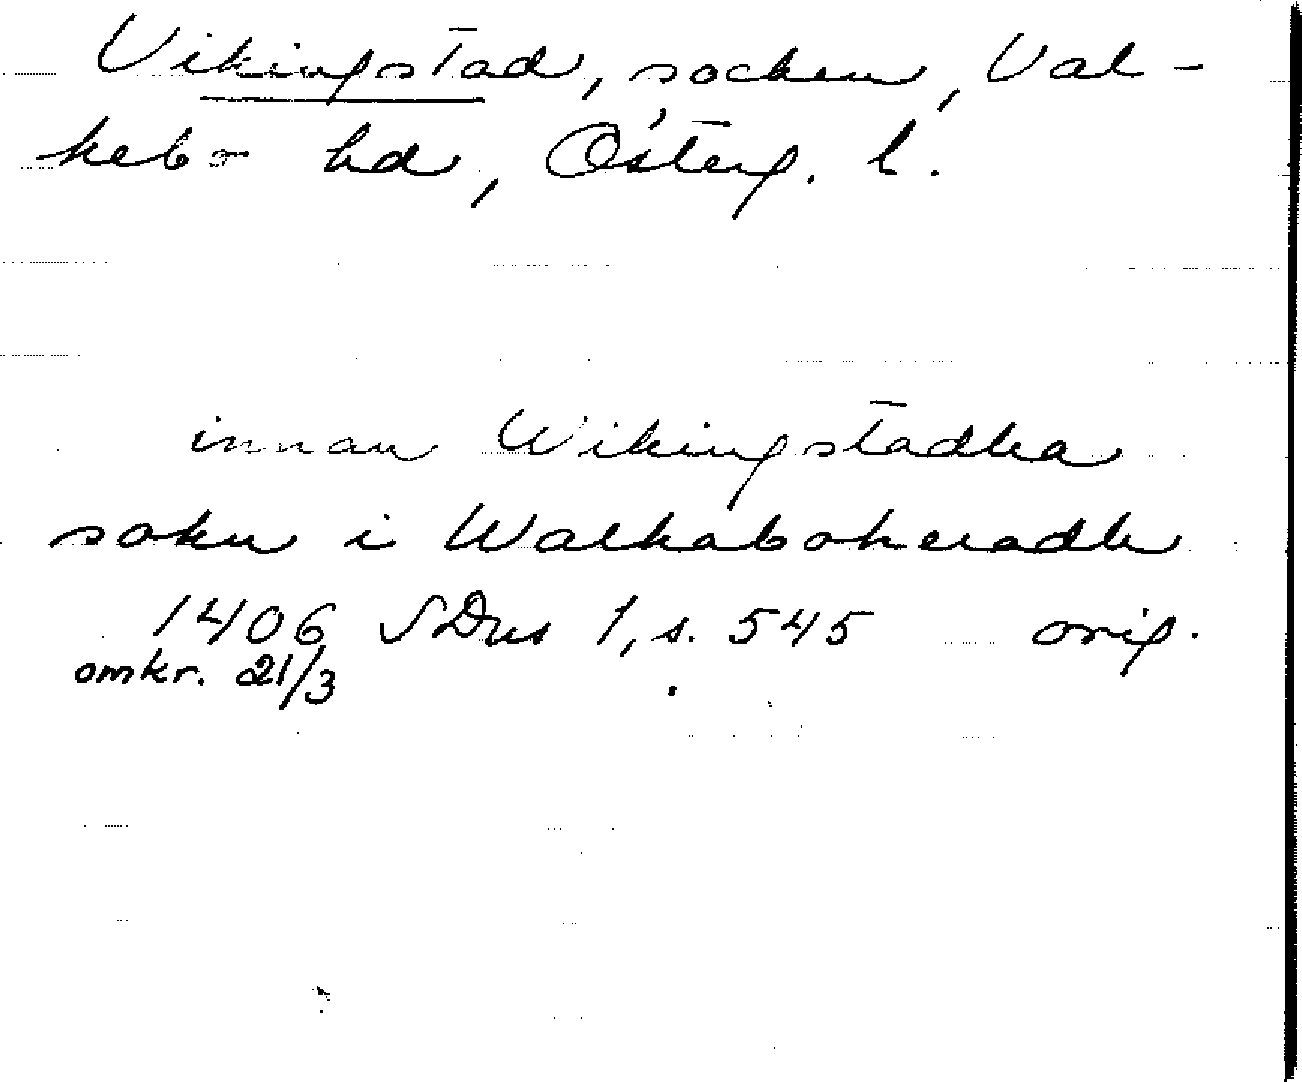 Vikingstad, socken, Val-
kebo hd, Österg. l.
innan Wikingstadha
sokn i Walkabohæradh
1406 SDns 1, s. 545 orig.
omkr. 21/3